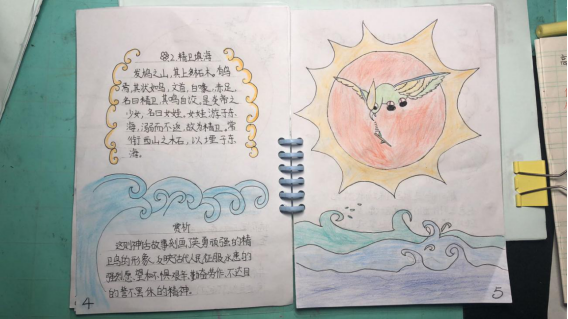 2.精卫填海
发鸠之山,其上多柘木。有鸟
焉,其状如乌,文首,白喙,赤足,
名曰精卫,其鸣自詨,是炎帝之
少女,名曰女娃。女娃游于东
海,溺而不返,故为精卫。常
衔西山之木石,以堙于东
海。
赏析
这则神话故事刻画了英勇顽强的精
卫鸟的形象,反映古代人民征服水患的
强烈愿望和不惧艰辛,勤奋劳作,不达目
的誓不罢休的精神。
4
5